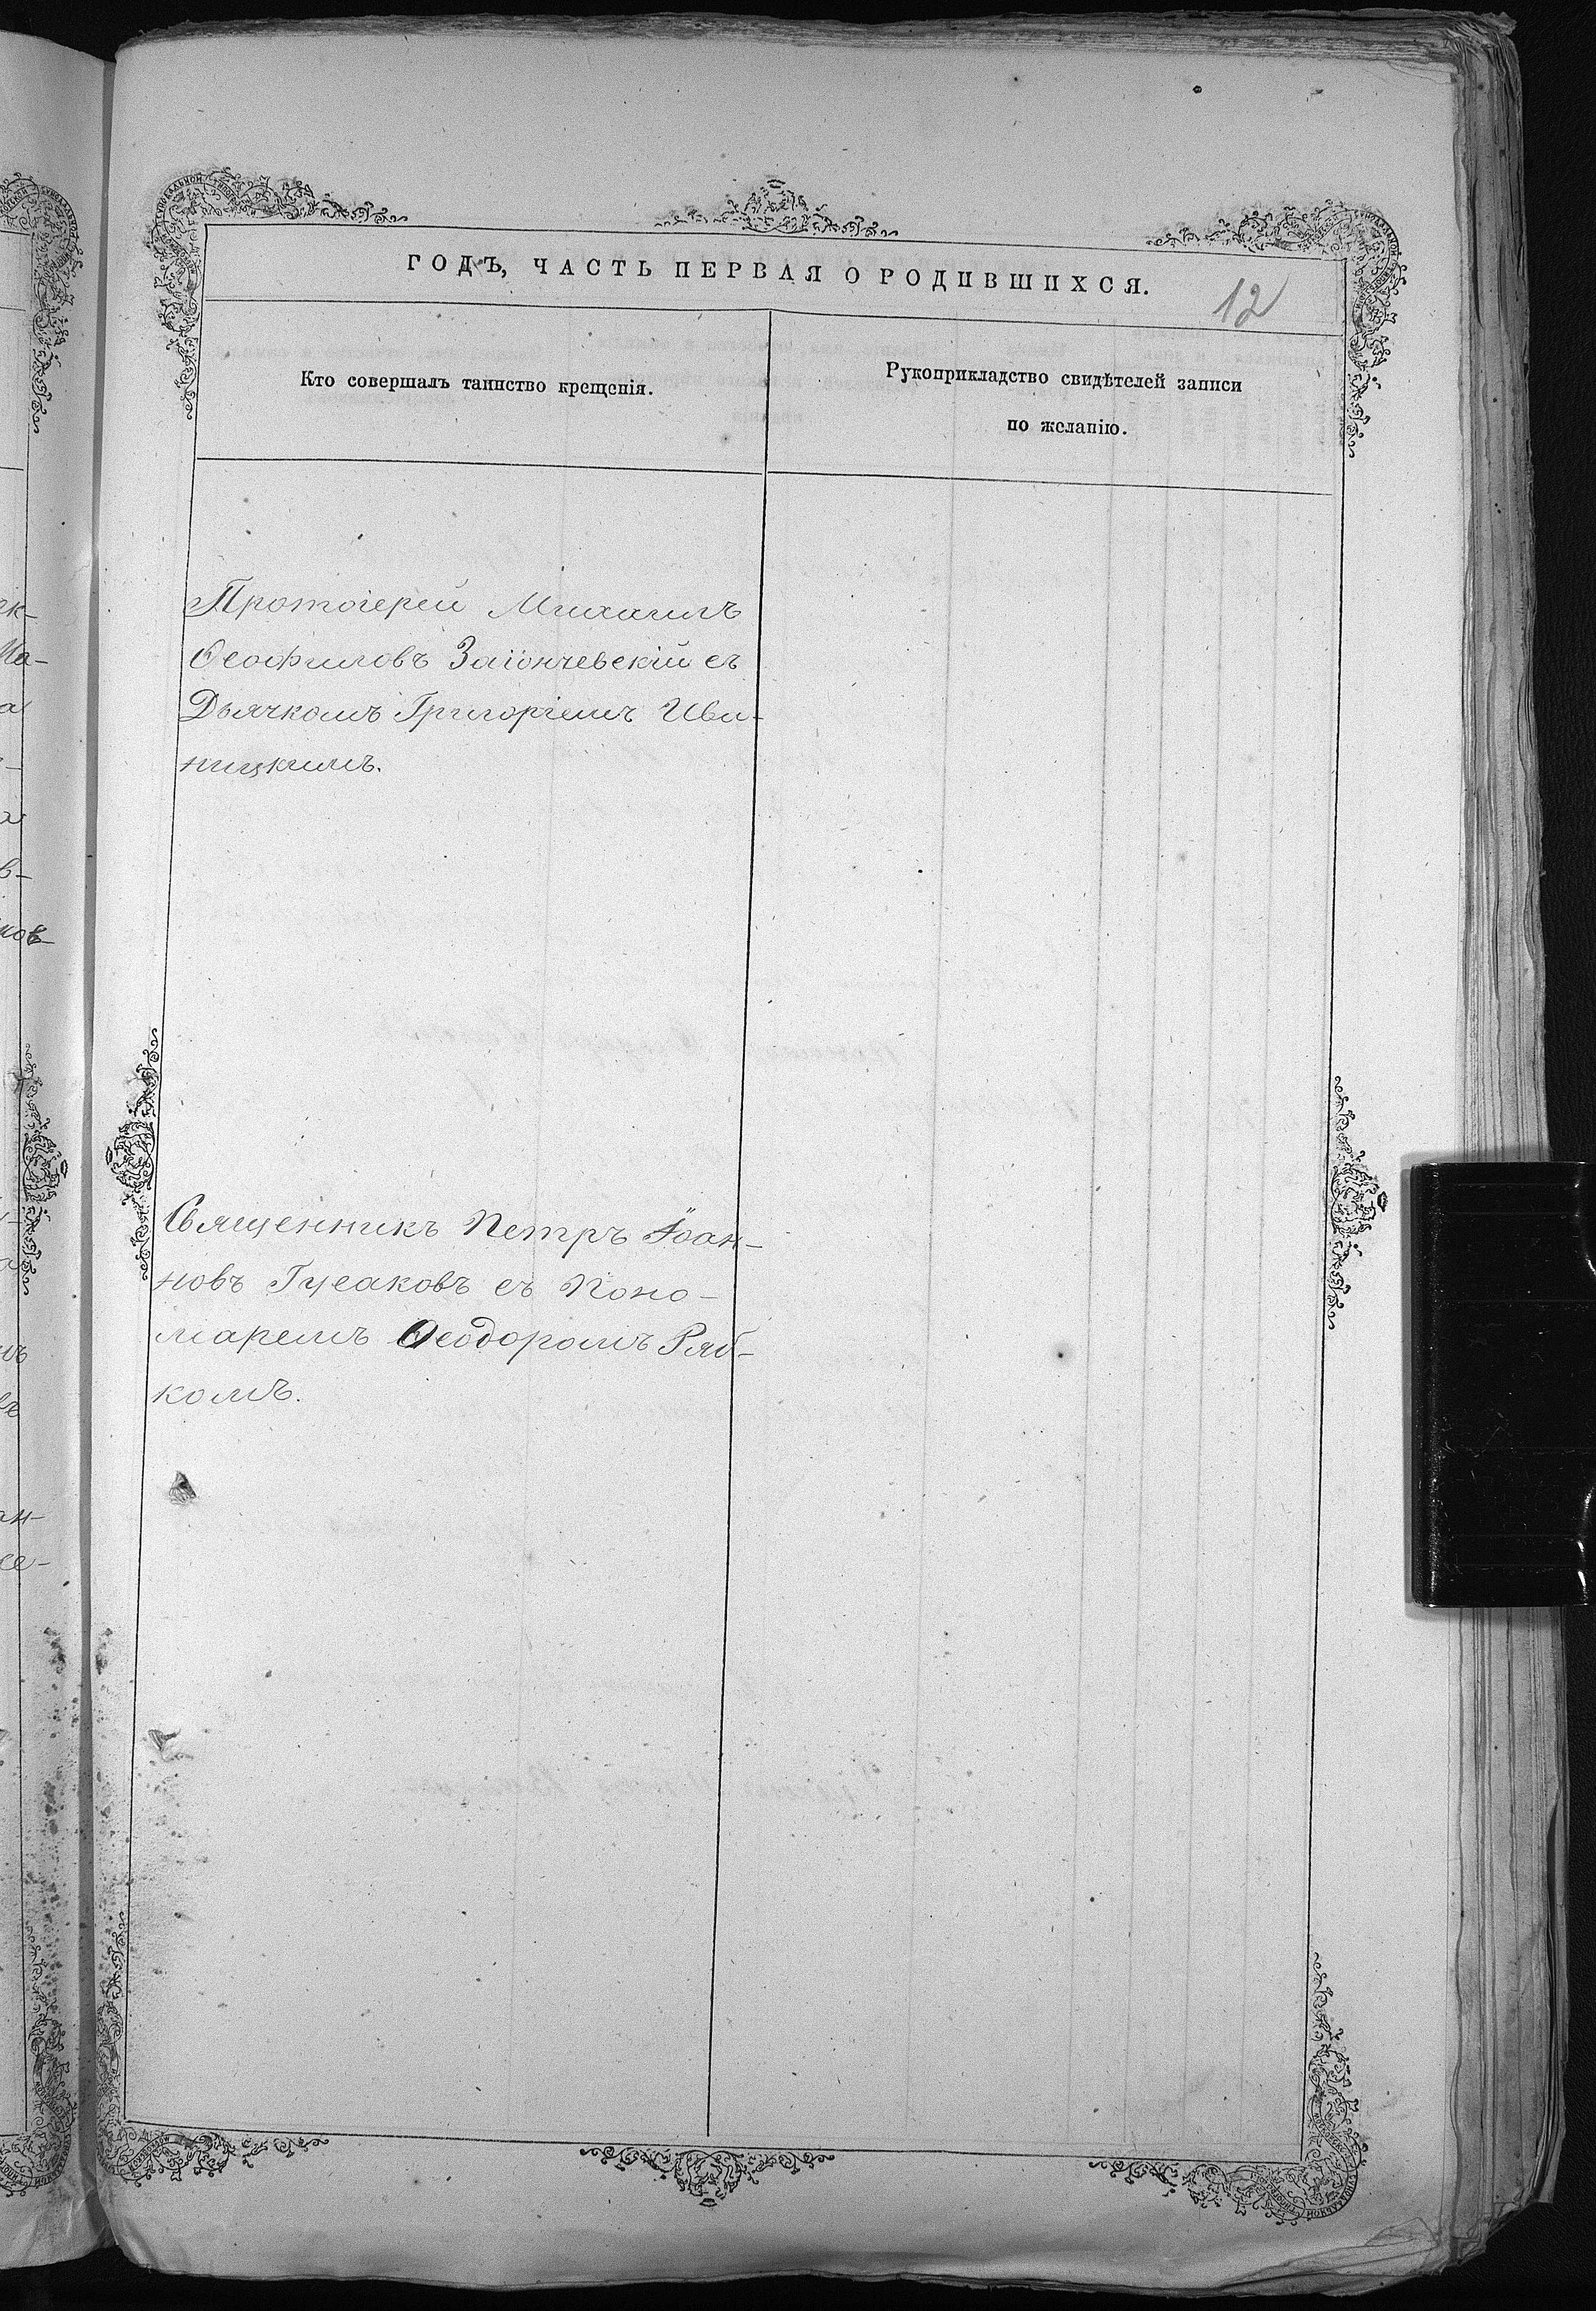 ГОДЪ, ЧАСТЬ ПЕРВАЯ О РОДИВШИХСЯ.
12
Кто совершалъ таинство крещенія.
Рукоприкладство свидѣтелей записи
по желанію.
Протоіерей Михаилъ
Ѳеофиловъ Заіончевскій съ
Дьячкомъ Григоріемъ Ива-
ницкимъ.
Священникъ Петръ Іоан-
новъ Гусаковъ съ Поно-
маремъ Ѳеодоромъ Ряб-
комъ.